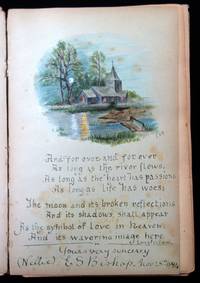 And for ever and for ever
As long as the river flows,
As long as the heart has passions
As long as life has woes;
The moon and its broken reflections
And its shadows, shall appear
As the symbol of Love in Heaven,
And its wavering image here.
Longfellow
Yours very sincerely
(Nellie) E S Bishop. Nov